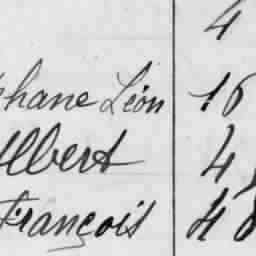 4
phane Léon 16
Albert 4
François 48